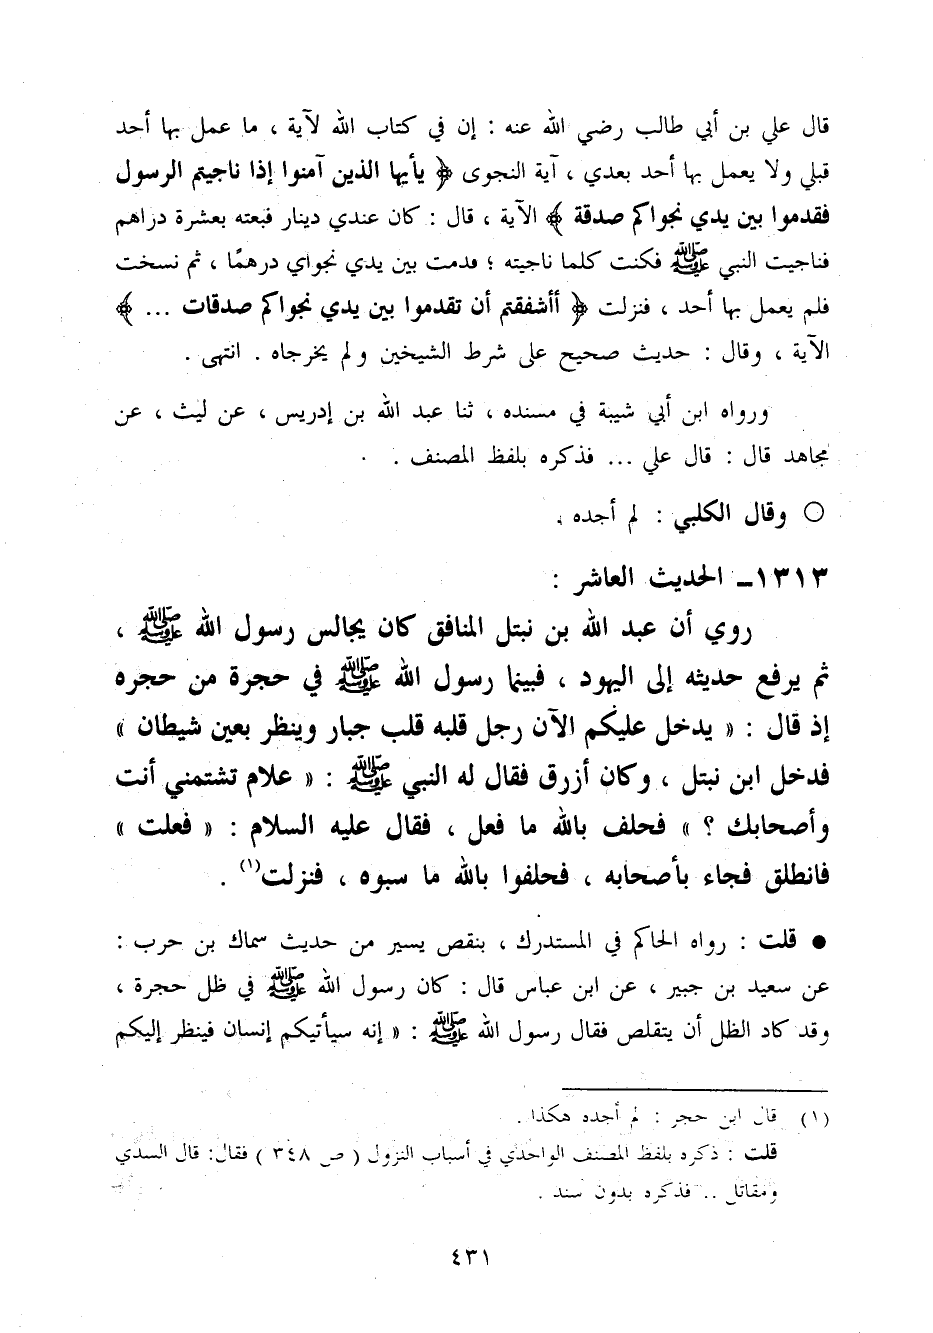 قال علي بن أبي طالب رضي الله عنه : إن في كتاب الله لآية ، ما عمل بها أحد
قبلي ولا يعمل بها أحد بعدي ، آية النجوى ﴿ يأيها الذين آمنوا إذا ناجيتم الرسول
فقدموا بين يدي نجواكم صدقة ﴾ الآية ، قال : كان عندي دينار فبعته بعشرة دراهم
فناجيت النبي ﷺ فكنت كلما ناجيته ؛ قدمت بين يدي نجواي درهمًا ، ثم نسخت
فلم يعمل بها أحد ، فنزلت ﴿ أأشفقتم أن تقدموا بين يدي نجواكم صدقات ... ﴾
الآية ، وقال : حديث صحيح على شرط الشيخين ولم يخرجاه . انتهى .
ورواه ابن أبي شيبة في مسنده ، ثنا عبد الله بن إدريس ، عن ليث ، عن
مجاهد قال : قال علي ... فذكره بلفظ المصنف .
○ وقال الكلبي : لم أجده .
١٣١٣ـ الحديث العاشر :
روي أن عبد الله بن نبتل المنافق كان يجالس رسول الله ﷺ ،
ثم يرفع حديثه إلى اليهود ، فبينما رسول الله ﷺ في حجرة من حجره
إذ قال : « يدخل عليكم الآن رجل قلبه قلب جبار وينظر بعين شيطان »
فدخل ابن نبتل ، وكان أزرق فقال له النبي ﷺ : « علام تشتمني أنت
وأصحابك ؟ » فحلف بالله ما فعل ، فقال عليه السلام : « فعلت »
فانطلق فجاء بأصحابه ، فحلفوا بالله ما سبوه ، فنزلت(١) .
● قلت : رواه الحاكم في المستدرك ، بنقص يسير من حديث سماك بن حرب :
عن سعيد بن جبير ، عن ابن عباس قال : كان رسول الله ﷺ في ظل حجرة ،
وقد كاد الظل أن يتقلص فقال رسول الله ﷺ : « إنه سيأتيكم إنسان فينظر إليكم
(١) قال ابن حجر : لم أجده هكذا .
قلت : ذكره بلفظ المصنف الواحدي في أسباب النزول ( ص ٣٤٨ ) فقال: قال السدي
ومقاتل .. فذكره بدون سند .
٤٣١